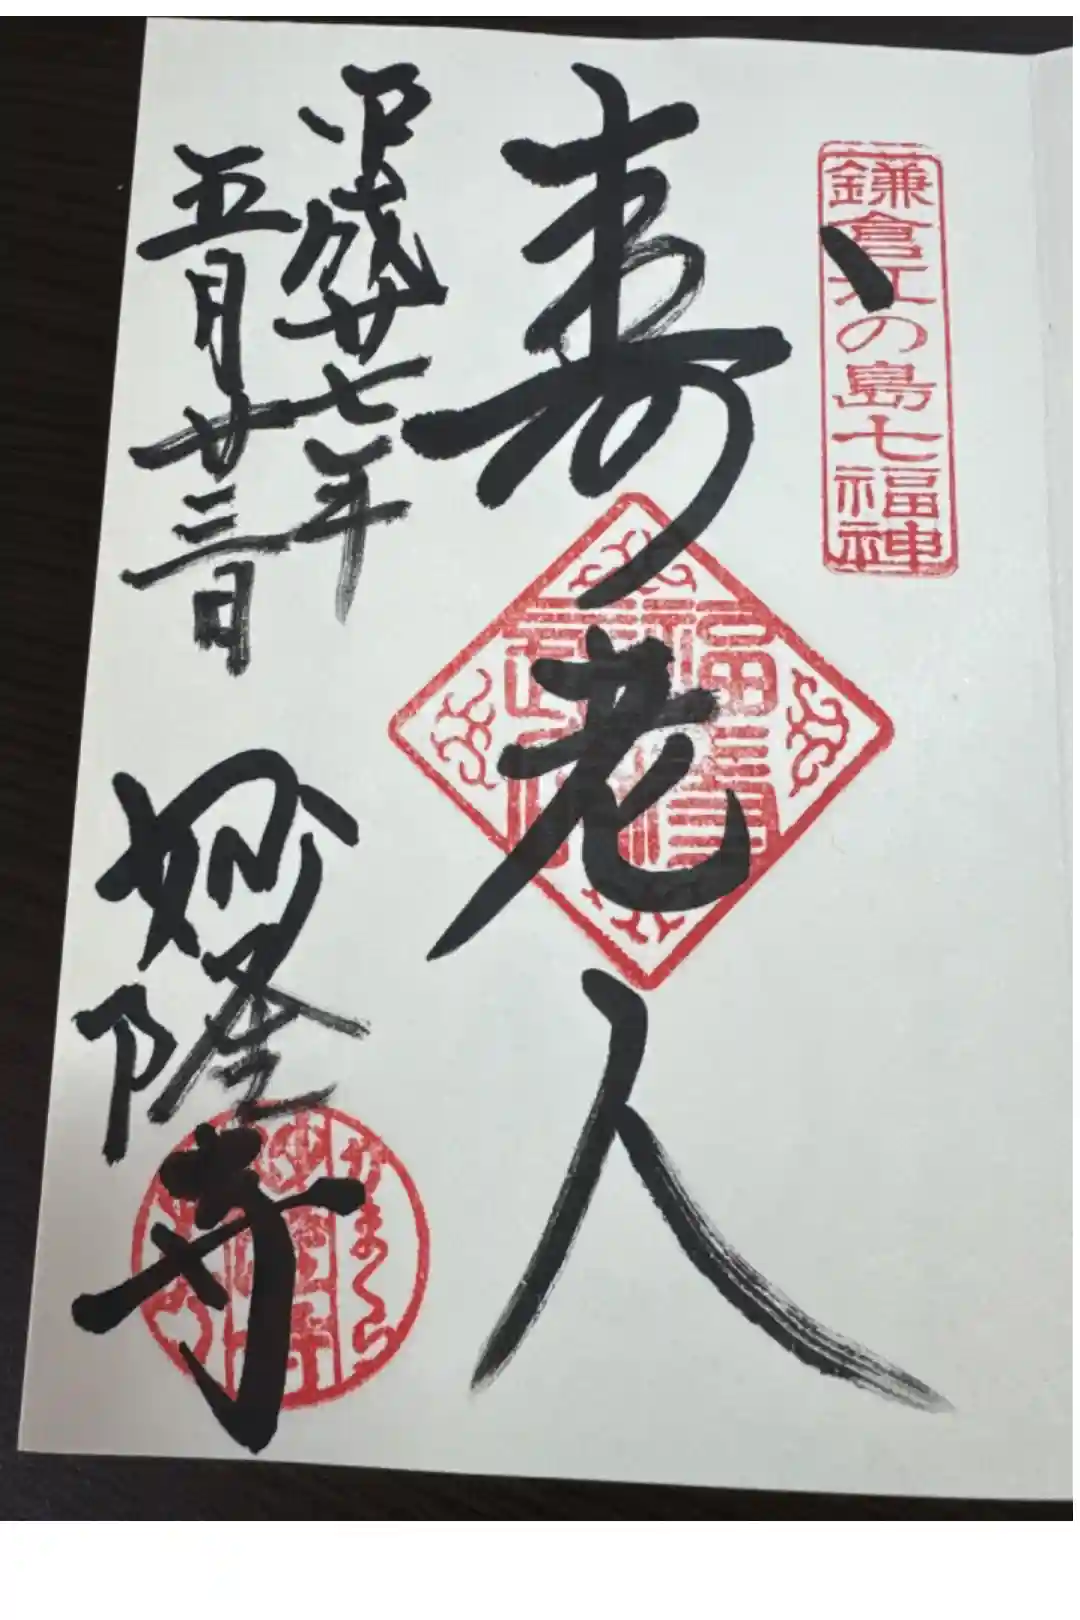 鎌倉江の島七福神
寿老人
平成廿七年
五月廿三日
妙隆寺
かまくら